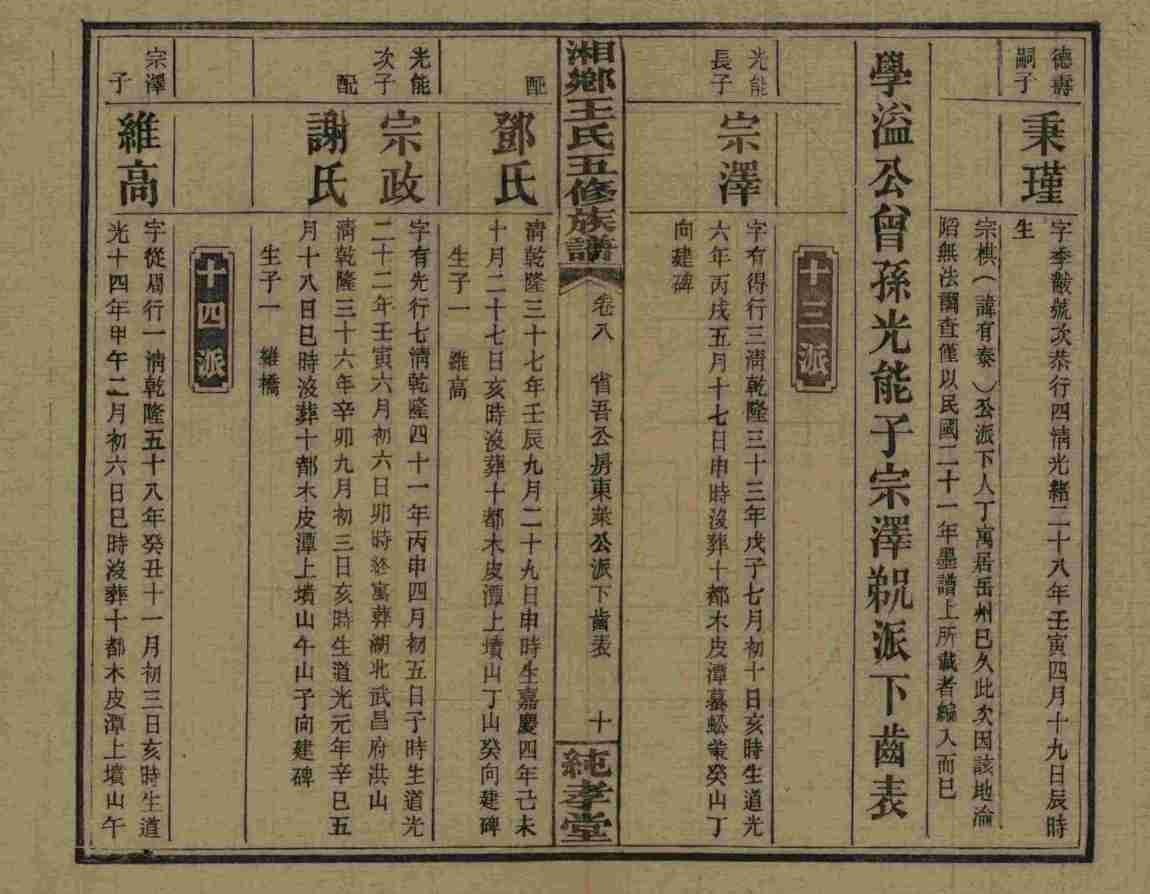 德壽
嗣子
秉瑾
字季黻號次恭行四清光緒二十八年壬寅四月十九日辰時
生
宗棋(諱有泰)公派下人丁寓居岳州已久此次因該地淪
陷無法調查僅以民國二十一年墨譜上所載者編入而已
學溢公曾孫光能子宗澤祝派下齒表
十三派
光能
長子
宗澤
字有得行三清乾隆三十三年戊子七月初十日亥時生道光
六年丙戌五月十七日申時沒葬十都木皮潭墓蚣業癸山丁
向建碑
湘鄉王氏五修族譜
卷八
省吾公房東萊公派下齒表
十
純孝堂
配
鄧氏
清乾隆三十七年壬辰九月二十九日申時生嘉慶四年己未
十月二十七日亥時沒葬十都木皮潭上墳山丁山癸向建碑
生子一 維高
光能
次子
宗政
字有先行七清乾隆四十一年丙申四月初五日子時生道光
二十二年壬寅六月初六日卯時終寓葬湖北武昌府洪山
配
謝氏
清乾隆三十六年辛卯九月初三日亥時生道光元年辛巳五
月十八日巳時沒葬十都木皮潭上墳山午山子向建碑
生子一 維橋
十四派
宗澤
子
維高
字從眉行一清乾隆五十八年癸丑十一月初三日亥時生道
光十四年甲午二月初六日巳時沒葬十都木皮潭上墳山午